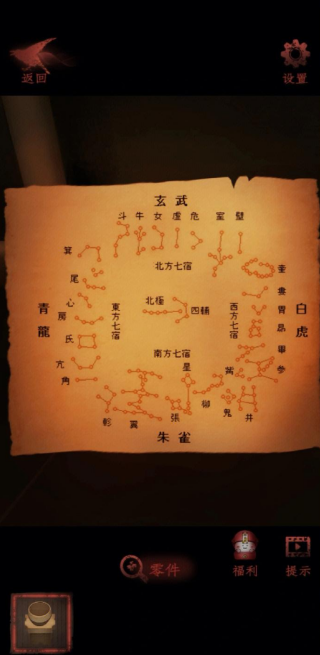 返回
设置
玄武
斗 牛 女 虚 危 室 壁
箕
尾
心
房
氐
亢
角
青龍
東方七宿
北方七宿
北極
四輔
西方七宿
南方七宿
奎
婁
胃
昴
畢
參
觜
白虎
星
軫
翼
張
柳
鬼
井
朱雀
零件
福利
提示